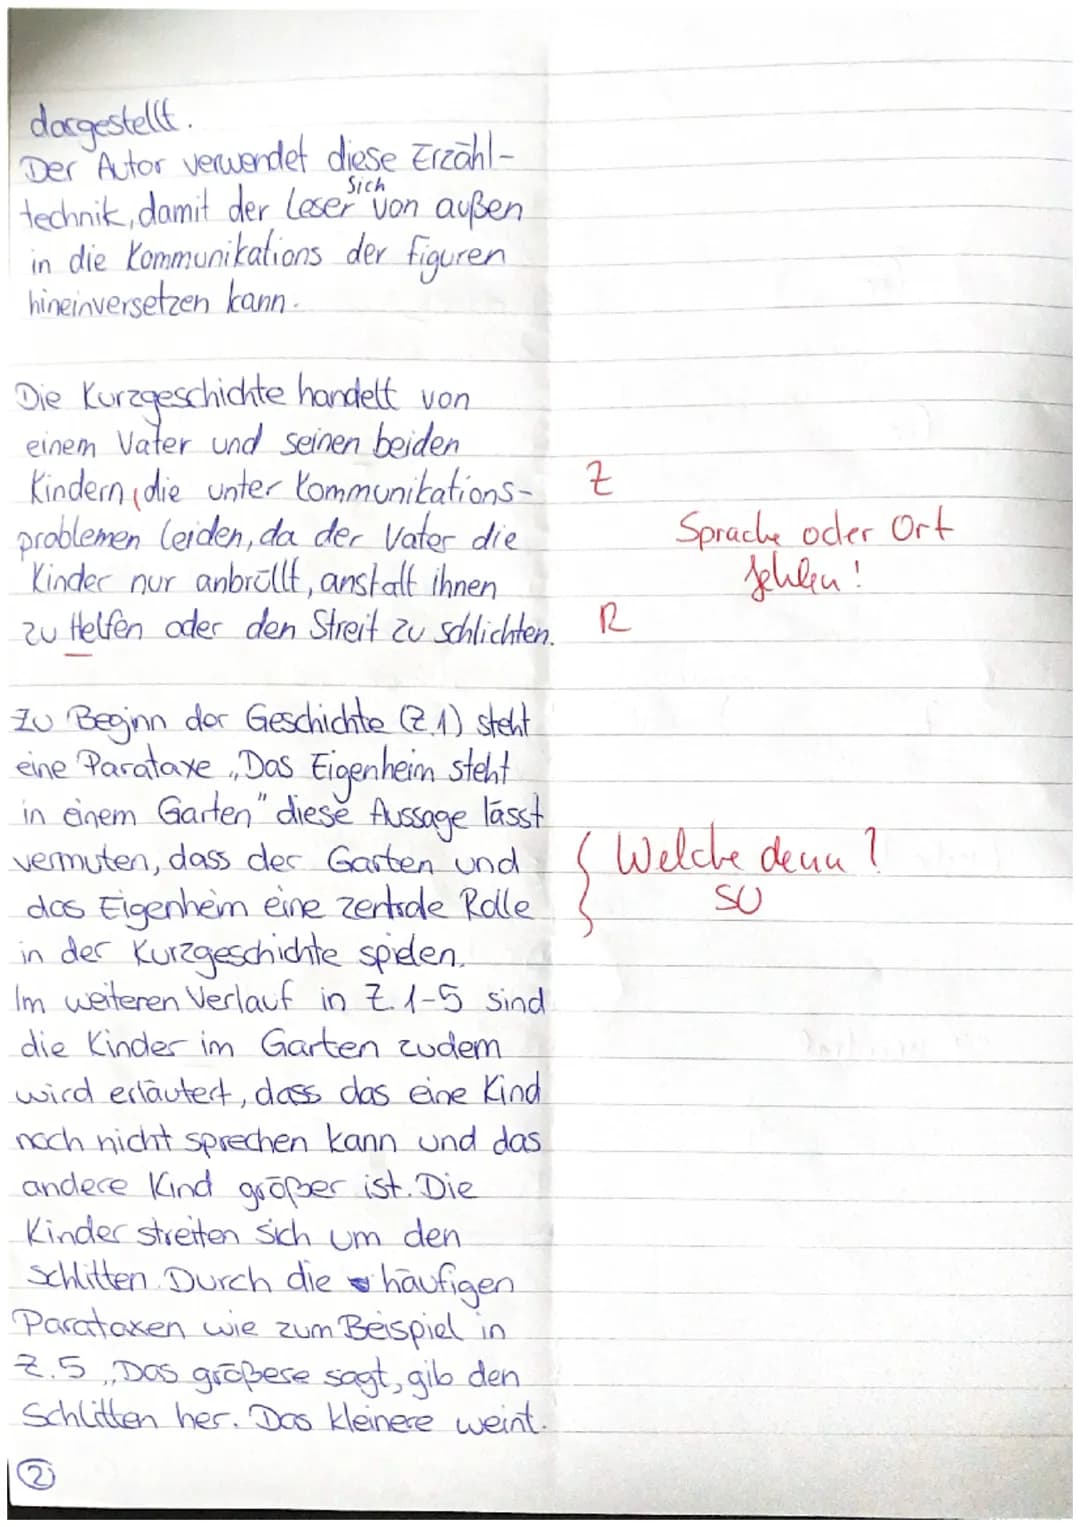 dargestellt.
Der Autor verwendet diese Erzähl-
sich
technik, damit der Leser von außen
in die Kommunikations der Figuren
hineinversetzen kann.
Die Kurzgeschichte handelt von
einem Vater und seinen beiden
Kindern, die unter Kommunikations- Z
problemen leiden, da der Vater die Sprache oder Ort
Kinder nur anbrüllt, anstatt ihnen fehlen!
zu Helfen oder den Streit zu schlichten. R
Zu Beginn der Geschichte (Z.1) steht
eine Parataxe „Das Eigenheim steht
in einem Garten" diese Aussage lässt
vermuten, dass der Garten und { Welche denn?
das Eigenheim eine zentrale Rolle SU
in der Kurzgeschichte spielen.
Im weiteren Verlauf in Z.1-5 sind
die Kinder im Garten zudem
wird erläutert, dass das eine Kind
noch nicht sprechen kann und das
andere Kind größer ist. Die
Kinder streiten sich um den
Schlitten. Durch die häufigen
Parataxen wie zum Beispiel in
Z.5 „Das größere sagt, gib den
Schlitten her. Das kleinere weint.
2